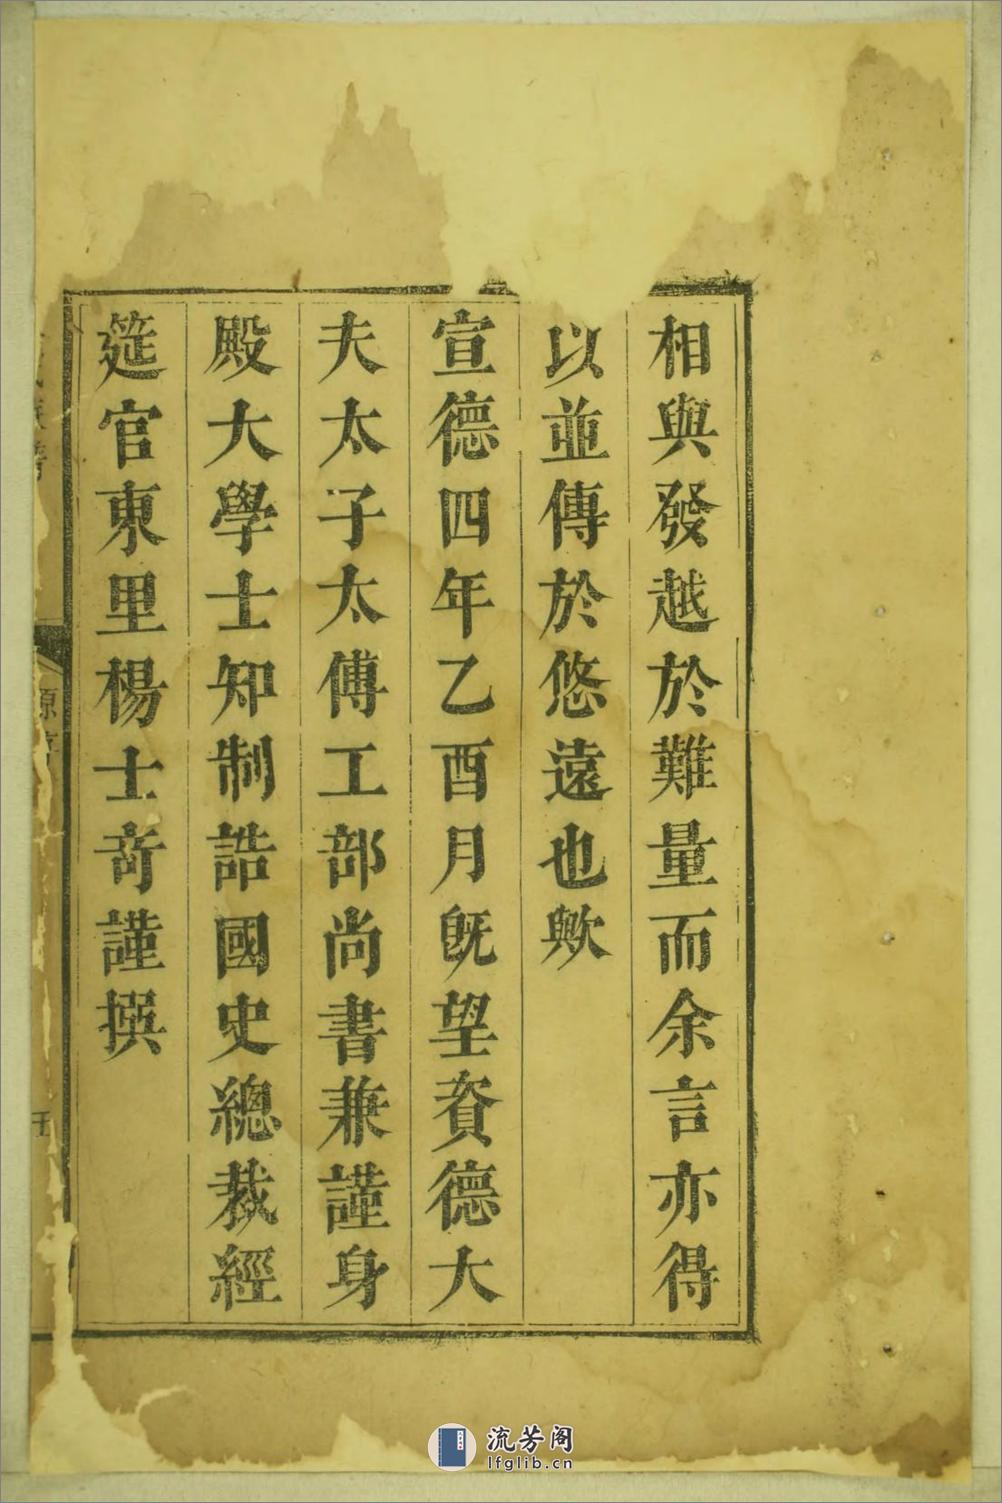 相與發越於難量而余言亦得
以並傳於悠遠也歟
宣德四年乙酉月既望資德大
夫太子太傅工部尚書兼謹身
殿大學士知制誥國史總裁經
筵官東里楊士奇謹撰
源
流芳阁
lfglib.cn